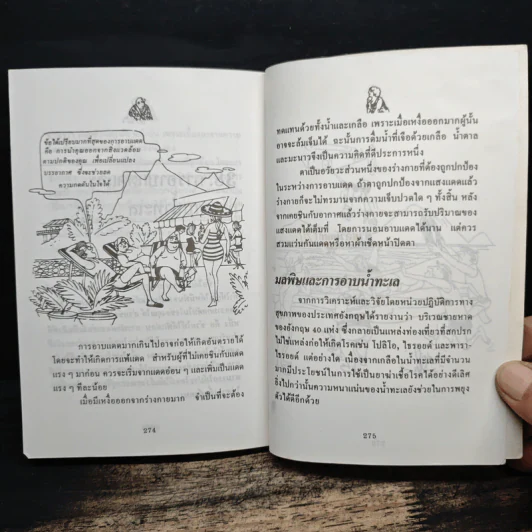 ข้อได้เปรียบมากที่สุดของการอาบแดด
คือ การนำคุณออกจากสิ่งแวดล้อม
ตามปกติของคุณ เพื่อเปลี่ยนแปลง
บรรยากาศ ซึ่งจะช่วยลด
ความกดดันในใจได้
การอาบแดดมากเกินไปอาจก่อให้เกิดอันตรายได้
โดยจะทำให้เกิดการแพ้แดด สำหรับผู้ที่ไม่เคยชินกับแดด
แรง ๆ มาก่อน ควรจะเริ่มจากแดดอ่อน ๆ และเพิ่มเป็นแดด
แรง ๆ ทีละน้อย
เมื่อมีเหงื่อออกจากร่างกายมาก จำเป็นที่จะต้อง
274
ทดแทนด้วยทั้งน้ำและเกลือ เพราะเมื่อเหงื่อออกมากผู้นั้น
อาจจะล้มเจ็บได้ ฉะนั้นการดื่มน้ำที่เจือด้วยเกลือ น้ำตาล
และมะนาวจึงเป็นความคิดที่ดีประการหนึ่ง
ตาเป็นอวัยวะส่วนหนึ่งของร่างกายที่ต้องถูกปกป้อง
ในระหว่างการอาบแดด ถ้าตาถูกปกป้องจากแสงแดดแล้ว
ร่างกายก็จะไม่ทรมานจากความเจ็บปวดใด ๆ ทั้งสิ้น หลัง
จากเคยชินกับอากาศแล้วร่างกายจะสามารถรับปริมาณของ
แสงแดดได้เต็มที่ โดยการนอนอาบแดดได้นาน แต่ควร
สวมแว่นกันแดดหรือหาผ้าเช็ดหน้าปิดตา
มลพิษและการอาบน้ำทะเล
จากการวิเคราะห์และวิจัยโดยหน่วยปฏิบัติการทาง
สุขภาพของประเทศอังกฤษได้รายงานว่า บริเวณชายหาด
ของอังกฤษ 40 แห่ง ซึ่งกลายเป็นแหล่งท่องเที่ยวที่สกปรก
ไม่ใช่แหล่งก่อให้เกิดโรคเช่น โปลิโอ, ไธรอยด์ และพารา-
ไธรอยด์ แต่อย่างใด เนื่องจากเกลือในน้ำทะเลที่มีจำนวน
มากมีประโยชน์ในการใช้เป็นยาฆ่าเชื้อโรคได้อย่างดีเลิศ
ยิ่งไปกว่านั้นความหนาแน่นของน้ำทะเลยังช่วยในการพยุง
ตัวได้ดีอีกด้วย
275